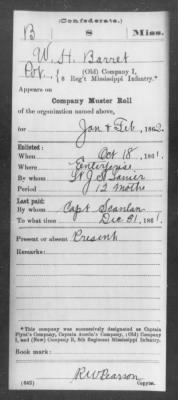 (Confederate.)
B 8 Miss.
W. H. Barret
Pvt., (Old) Company I,
8 Reg't Mississippi Infantry.*
Appears on
Company Muster Roll
of the organization named above,
for Jan & Feb, 1862.
Enlisted:
When Oct 18, 1861.
Where Enterprise
By whom Lt J. S. Lanier
Period 12 moths
Last paid:
By whom Capt Scanlan
To what time Dec 31, 1861.
Present or absent Present
Remarks:
*This company was successively designated as Captain
Flynt's Company, Captain Austin's Company, (Old) Company
I, and (New) Company B, 8th Regiment Mississippi Infantry.
Book mark:
(642) R W Pearson
Copyist.